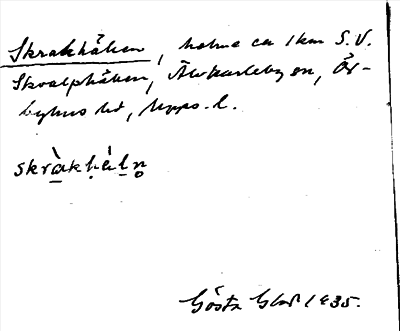 Skrakhällen, holme ca 1 km S.V.
Skvalphällen, Älvkarleby sn, Ör-
byhus hd, Upps. l.
skràkhèln̥
Gösta 1935.